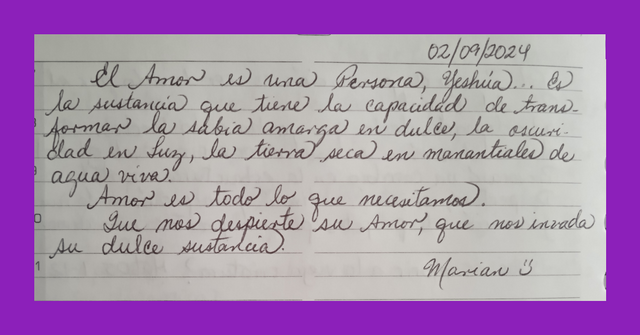 02/09/2024
El Amor es una Persona, Yeshúa... Es
la sustancia que tiene la capacidad de trans-
formar la sabia amarga en dulce, la oscuri-
dad en Luz, la tierra seca en manantiales de
agua viva.
Amor es todo lo que necesitamos.
Que nos despierte su Amor, que nos invada
su dulce sustancia.
Marian